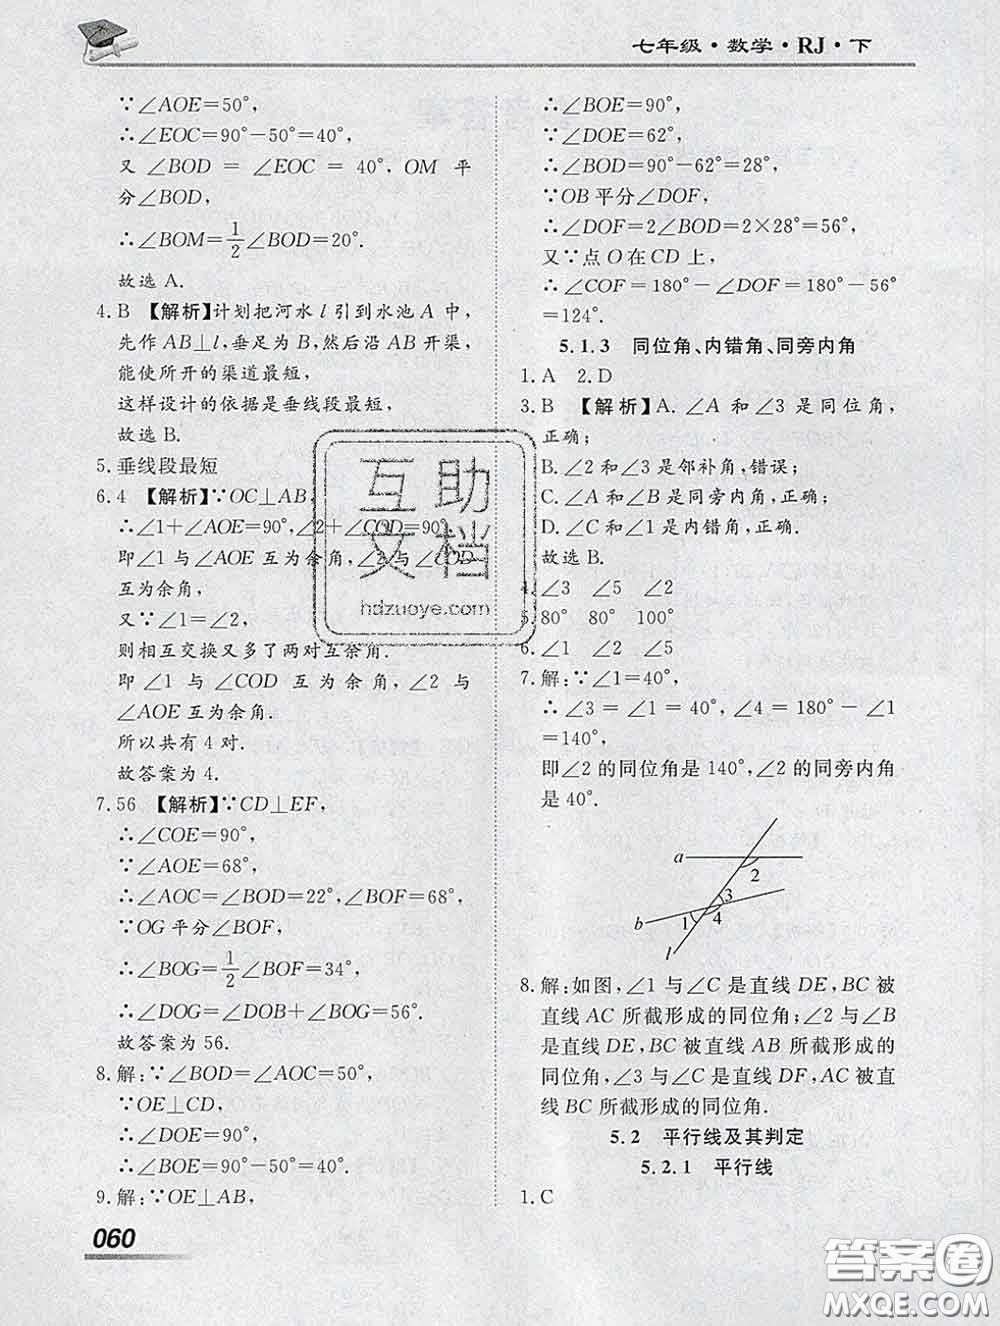 七年级·数学·RJ·下
∵∠AOE=50°,
∴∠EOC=90°-50°=40°,
又∠BOD = ∠EOC = 40°, OM 平
分∠BOD,
∴∠BOM=1/2∠BOD=20°.
故选 A.
4.B 【解析】计划把河水 l 引到水池 A 中,
先作 AB⊥l,垂足为 B,然后沿 AB 开渠,
能使所开的渠道最短,
这样设计的依据是垂线段最短,
故选 B.
5.垂线段最短
6.4 【解析】∵OC⊥AB,
∴∠1+∠AOE=90°,∠2+∠COD=90°,
即∠1 与∠AOE 互为余角,∠2 与∠COD
互为余角,
又∵∠1=∠2,
则相互交换又多了两对互余角.
即∠1 与∠COD 互为余角,∠2 与
∠AOE 互为余角.
所以共有 4 对.
故答案为 4.
7.56 【解析】∵CD⊥EF,
∴∠COE=90°,
∵∠AOE=68°,
∴∠AOC=∠BOD=22°,∠BOF=68°,
∵OG 平分∠BOF,
∴∠BOG=1/2∠BOF=34°,
∴∠DOG=∠DOB+∠BOG=56°.
故答案为 56.
8.解:∵∠BOD=∠AOC=50°,
∵OE⊥CD,
∴∠DOE=90°,
∴∠BOE=90°-50°=40°.
9.解:∵OE⊥AB,
060
∴∠BOE=90°,
∵∠DOE=62°,
∴∠BOD=90°-62°=28°,
∵OB 平分∠DOF,
∴∠DOF=2∠BOD=2×28°=56°,
又∵点 O 在 CD 上,
∴∠COF=180°-∠DOF=180°-56°
=124°.
5.1.3 同位角、内错角、同旁内角
1.A 2.D
3.B 【解析】A.∠A 和∠3 是同位角,
正确;
B.∠2 和∠3 是邻补角,错误;
C.∠A 和∠B 是同旁内角,正确;
D.∠C 和∠1 是内错角,正确.
故选 B.
4.∠3 ∠5 ∠2
5.80° 80° 100°
6.∠1 ∠2 ∠5
7.解:∵∠1=40°,
∴∠3 = ∠1 = 40°,∠4 = 180° - ∠1
=140°,
即∠2 的同位角是 140°,∠2 的同旁内角
是 40°.
a
2
3
b
1
4
l
8.解:如图,∠1 与∠C 是直线 DE,BC 被
直线 AC 所截形成的同位角;∠2 与∠B
是直线 DE,BC 被直线 AB 所截形成的
同位角,∠3 与∠C 是直线 DF,AC 被直
线 BC 所截形成的同位角.
5.2 平行线及其判定
5.2.1 平行线
1.C
互助
文档
hdzuoye.com
答案圈
MXQE.COM